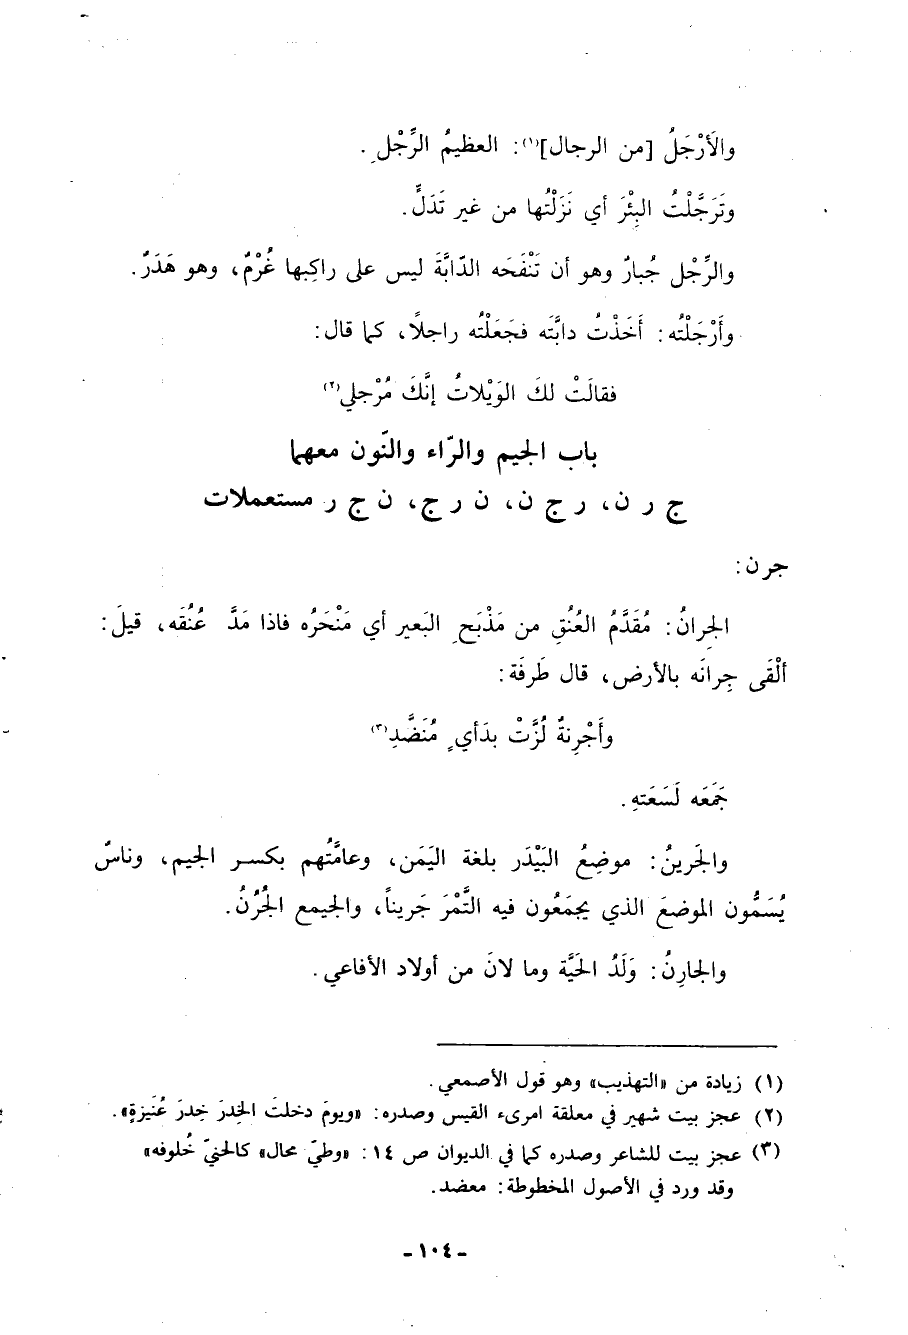 والَأرْجَلُ [من الرجال]<sup>(١)</sup>: العظيمُ الرِّجْلِ.
وتَرَجَّلْتُ البِئْرَ أي نَزَلْتُها من غير تَدَلٍّ.
والرِّجْل جُبارٌ وهو أن تَنْفَحَه الدّابَّةَ ليس على راكِبها غُرْمٌ، وهو هَدَرٌ.
وأَرْجَلْتُه: أَخَذْتُ دابَّتَه فجَعَلْتُه راجلًا، كما قال:
فقالَتْ لكَ الوَيْلاتُ إنَّكَ مُرْجلي<sup>(٢)</sup>
باب الجيم والرّاء والنّون معهما
ج ر ن، ر ج ن، ن ر ج، ن ج ر مستعملات
جرن:
الجِرانُ: مُقَدَّمُ العُنُقِ من مَذْبَحِ البَعير أي مَنْحَرُه فاذا مَدَّ عُنُقَه، قيلَ:
ألْقَى جِرانَه بالأرض، قال طَرفَة:
وأَجْرِنةٌ لُزَّتْ بدَأيٍ مُنَضَّدِ<sup>(٣)</sup>
جَمَعَه لَسَعَتهِ.
والجَرينُ: موضِعُ البَيْدَر بلغة اليَمَن، وعامَّتُهم بكسر الجيم، وناسٌ
يُسَمُّون الموضعَ الذي يجمَعُون فيه التَّمْرَ جَريناً، والجيمع الجُرُنُ.
والجارِنُ: وَلَدُ الحَيَّة وما لانَ من أولاد الأفاعي.
(١) زيادة من «التهذيب» وهو قول الأصمعي.
(٢) عجز بيت شهير في معلقة امرىء القيس وصدره: «ويومَ دخلتَ الخِدرَ خِدرَ عُنَيزةٍ».
(٣) عجز بيت للشاعر وصدره كما في الديوان ص ١٤: «وطيّ محال» كالحنيّ خُلوفه»
وقد ورد في الأصول المخطوطة: معضد.
- ١٠٤ -